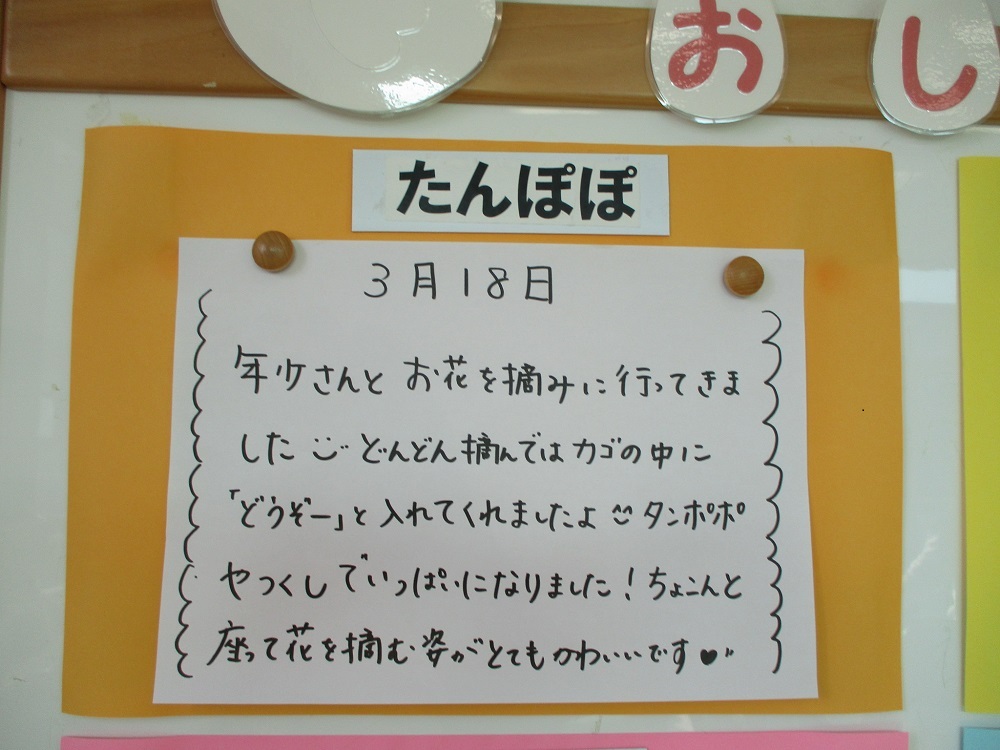 おし
たんぽぽ
3月18日
年少さんと お花を摘みに行ってきま
した どんどん摘んではカゴの中に
「どうぞー」と入れてくれましたよ タンポポ
やつくしでいっぱいになりました！ちょこんと
座って花を摘む姿がとてもかわいいです♥